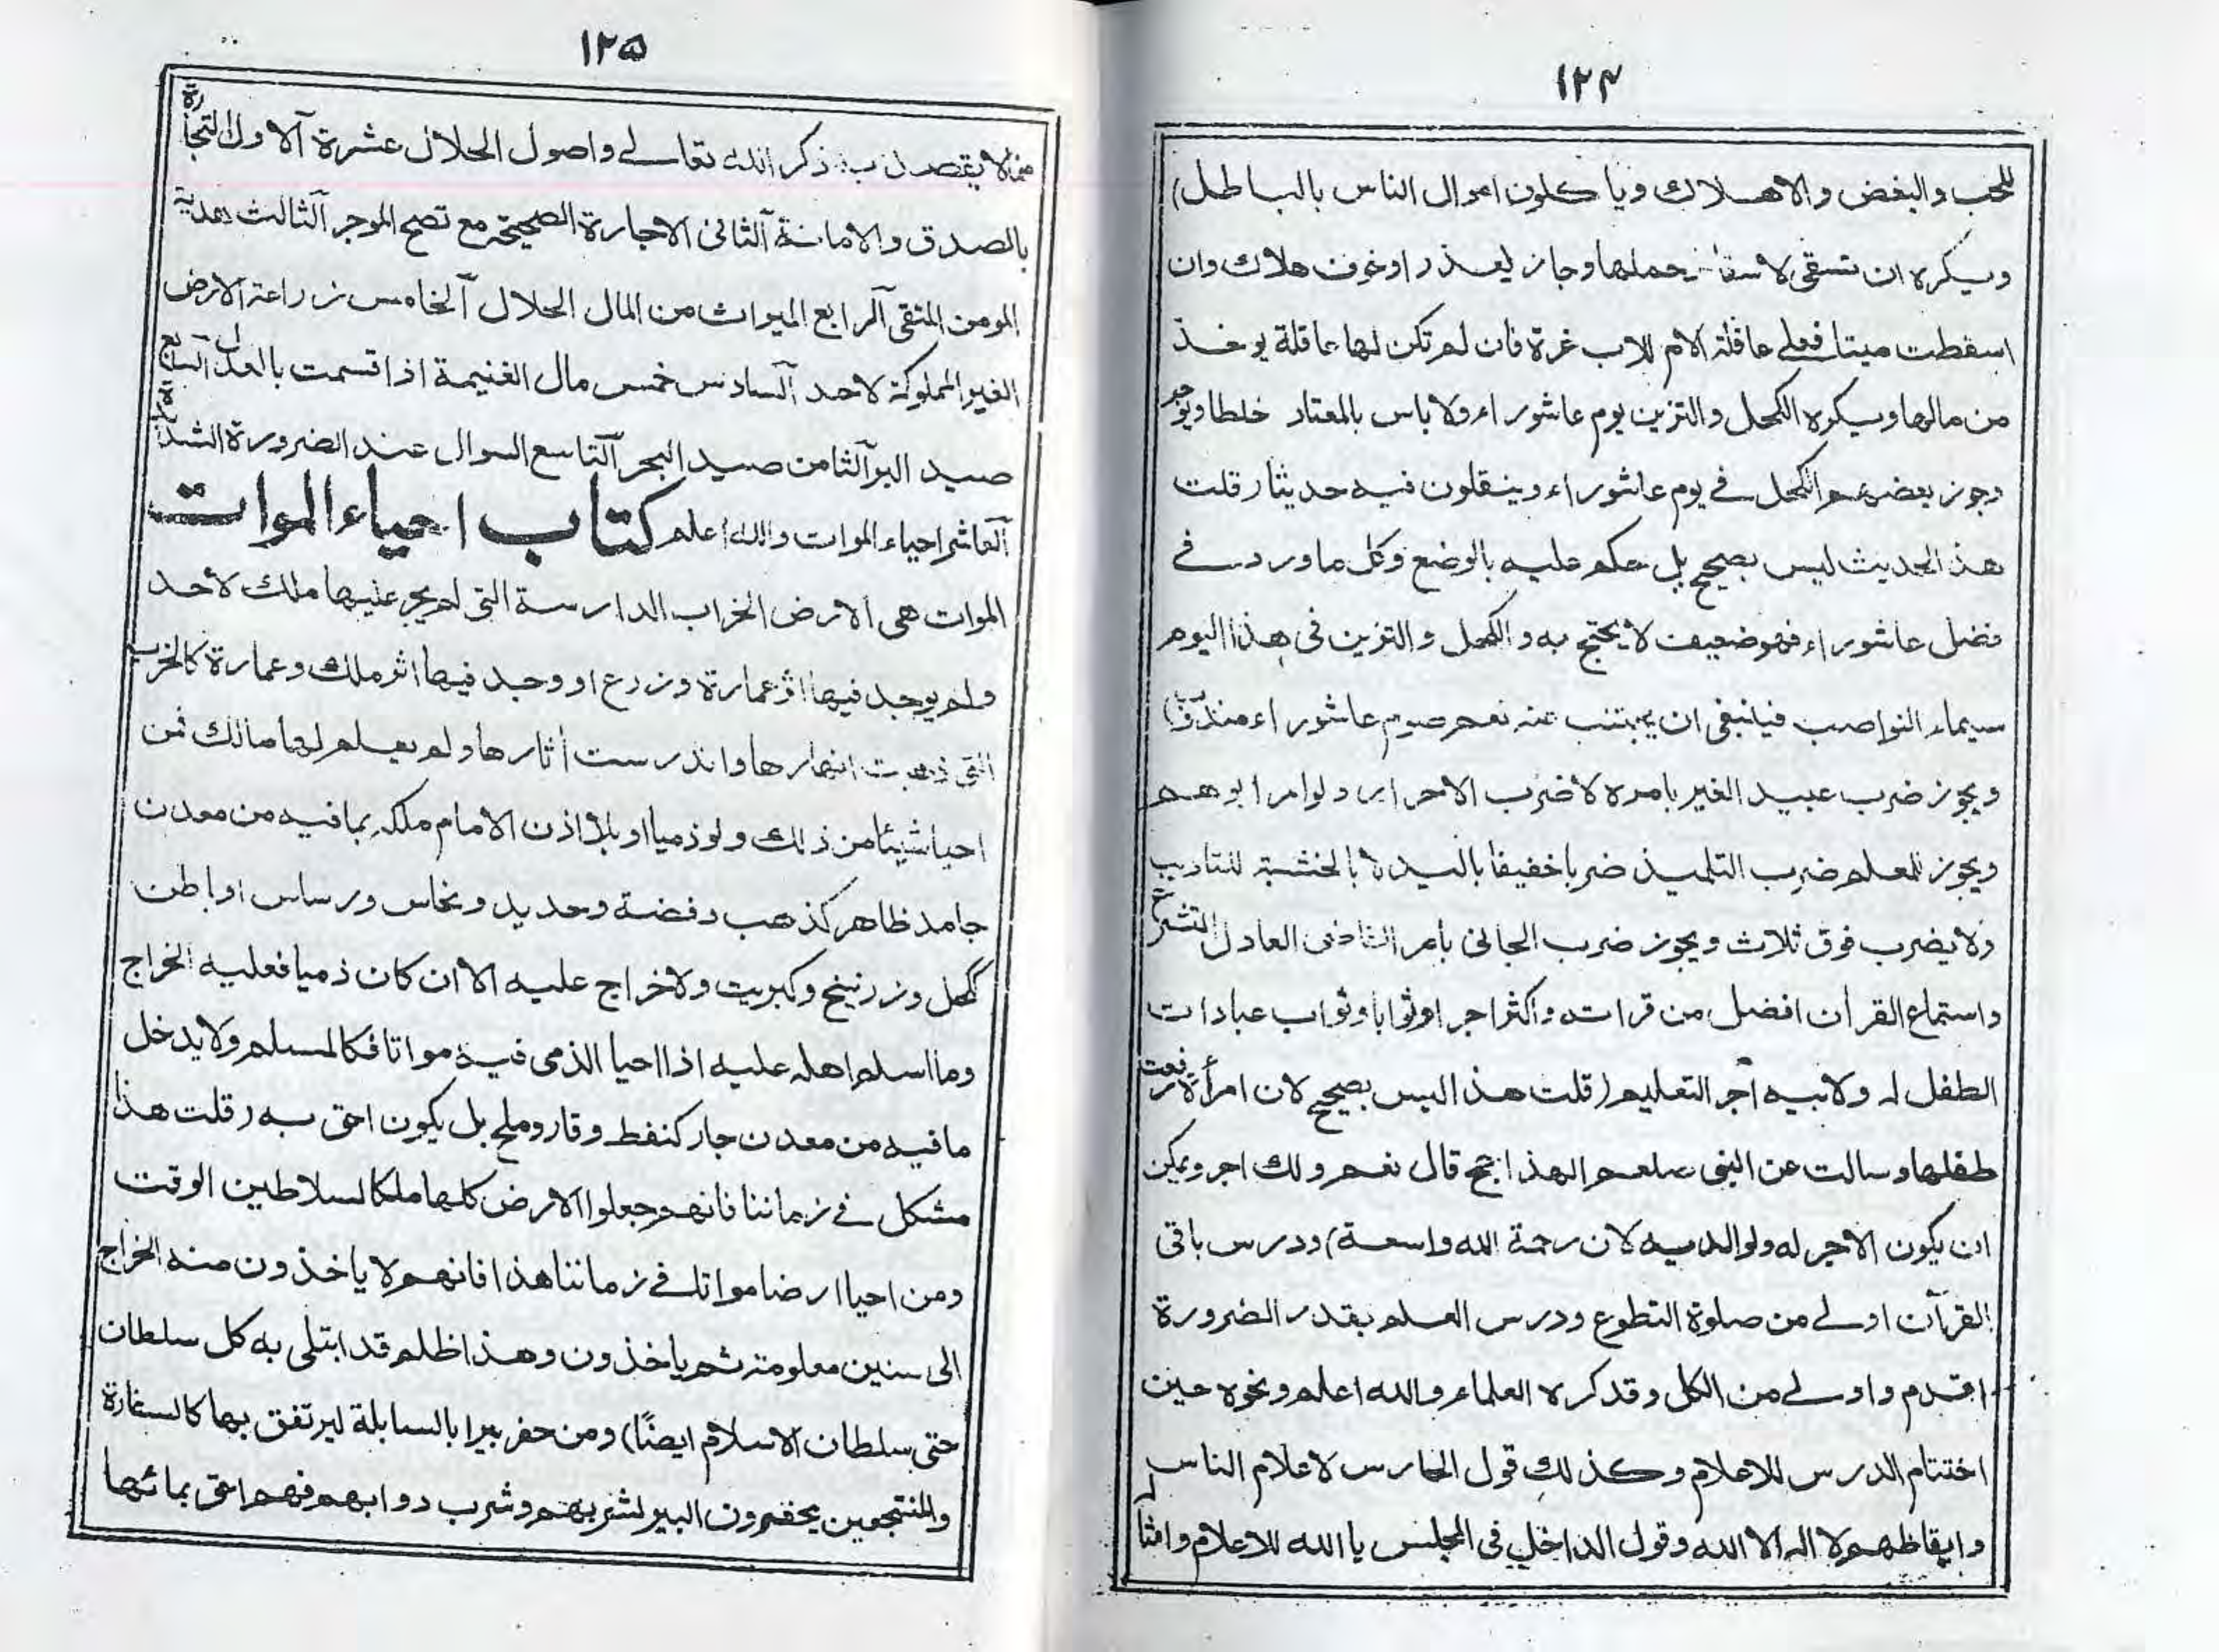 ١٢٤
للحب والبغض والاهلاك وياكلون اموال الناس بالباطل)
ويكره ان تسقى لاسقاط حملها وجاز لعذر اوخوف هلاك وان
اسقطت ميتا فعلى عاقلة الام للاب غرة فان لم تكن لها عاقلة يوخذ
من مالها ويكره الكحل والتزين يوم عاشوراء ولا باس بالمعتاد خلطا ويوجر
وجوز بعضهم الكحل فے يوم عاشوراء وينقلون فيه حديثا (قلت
هذ الحديث ليس بصحيح بل حكم عليه بالوضع وكل ما ورد فے
فضل عاشوراء فهو ضعيف لا يحتج به والكحل والتزين فى هذا اليوم
سيماء النواصب فينبغى ان يجتنب عنه نعم صوم عاشوراء مندوب)
ويجوز ضرب عبيد الغير بامره لا ضرب الاحرار ولو امر ابوهم
ويجوز للمعلم ضرب التلميذ ضربا خفيفا باليد لا بالخشبة للتاديب
ولا يضرب فوق ثلاث ويجوز ضرب الجانى بامر القاضى العادل المتشرع
واستماع القرآن افضل من قراته واكثر اجرا وثوابا وثواب عبادات
الطفل له ولابيه اجر التعليم (قلت هذ اليس بصحيح لان امرأة رفعت
طفلها وسالت عن النبى صلعم الهذا حج قال نعم ولك اجر ويمكن
ان يكون الاجر له ولوالديه لان رحمة الله واسعة) ودرس باقى
القرآن اولے من صلوة التطوع ودرس العلم بقدر الضرورة
اقدم واولے من الكل وقد كره العلماء والله اعلم ونحوه حين
اختتام الدرس للاعلام وكذلك قول الحارس لاعلام الناس
وايقاظهم لا اله الا الله وقول الداخل فى المجلس يا الله للاعلام وامثا
١٢٥
لا يقصد به ذكر الله تعالے واصول الحلال عشرة الاول التجارة
بالصدق والامانة الثانى الاجارة الصحيحة مع نصح الموجر الثالث هدية
المومن المتقى الرابع الميراث من المال الحلال الخامس زراعة الارض
الغير المملوكة لاحد السادس خمس مال الغنيمة اذا قسمت بالعدل السابع
صيد البر الثامن صيد البحر التاسع السوال عند الضرورة الشديدة
العاشر احياء الموات والله اعلم كتاب احياء الموات
الموات هى الارض الخراب الدارسة التى لم يجر عليها ملك لاحد
ولم يوجد فيها اثر عمارة وزرع او وجد فيها اثر ملك وعمارة كالخرب
التى ذهبت انهارها واندرست أثارها ولم يعلم لها مالك فمن
احيا شيئا من ذلك ولو ذميا او بلا اذن الامام ملكه بما فيه من معدن
جامد ظاهر كذهب وفضة وحديد ونحاس ورساس او باطن
ككحل وزرنيخ وكبريت ولا خراج عليه الا ان كان ذميا فعليه الخراج
وما اسلم اهله عليه اذا احيا الذمى فيه مواتا فكالمسلم ولا يدخل
ما فيه من معدن جار كنفط وقار وملح بل يكون احق به (قلت هذا
مشكل فے زماننا فانهم جعلوا الارض كلها ملكا لسلاطين الوقت
ومن احيا ارضا مواتا فے زماننا هذا فانهم لا ياخذون منه الخراج
الى سنين معلومة ثم ياخذون وهذا ظلم قد ابتلى به كل سلطان
حتى سلطان الاسلام ايضًا) ومن حفر بيرا بالسابلة ليرتفق بها كالسفارة
والمنتجعين يحفرون البير لشربهم وشرب دوابهم فهم احق بمائها